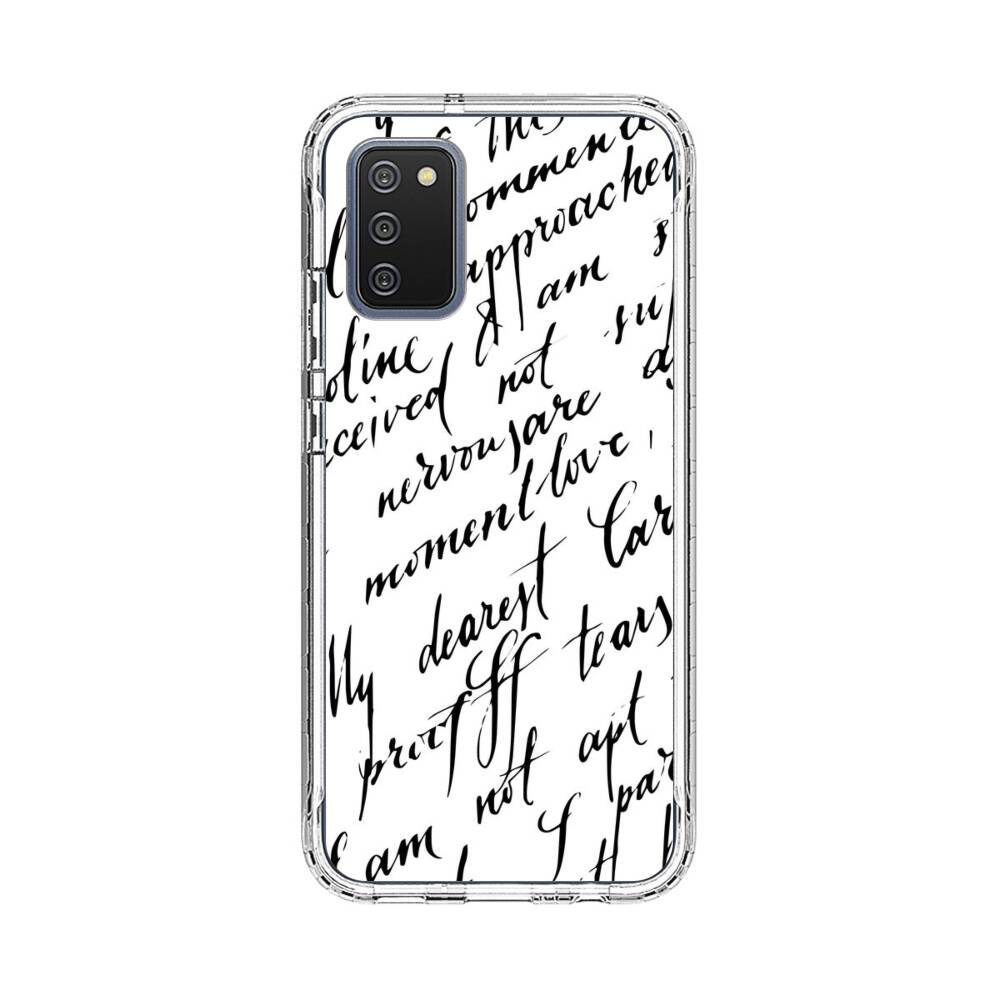 thi
ommence
approached
oline I am s
ceived not suf
nervous are
moment love,
My dearest Car
proof tears
I am not apt
I par